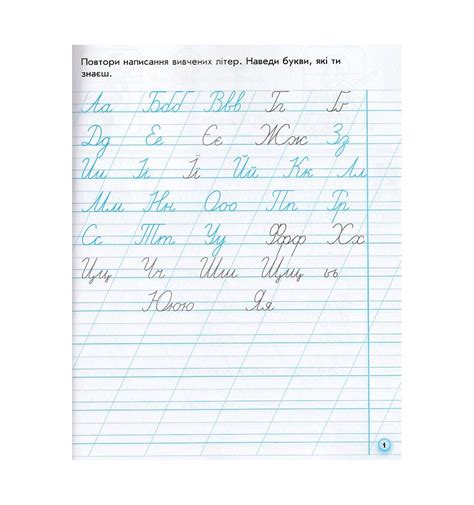 Повтори написання вивчених літер. Наведи букви, які ти
знаєш.
Аа Ббб Ввв Гг Ґґ
Дд Ее Єє Жж Зз
Ии Іі Її Йй Кк Лл
Мм Нн Ооо Пп Рр
Сс Тт Уу Ффф Хх
Цц Чч Шш Щщ ьь
Ююю Яя
1